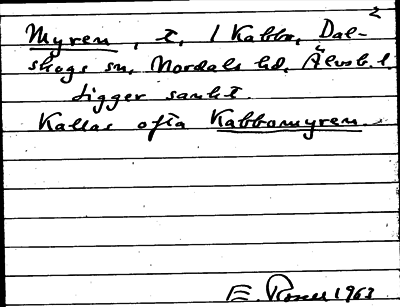 2
Myren, t. 1 Kabbo, Dal-
skogs sn, Nordals hd, Älvsb. l.
Ligger sankt.
Kallas ofta Kabbomyren.
E. Rosell 1963